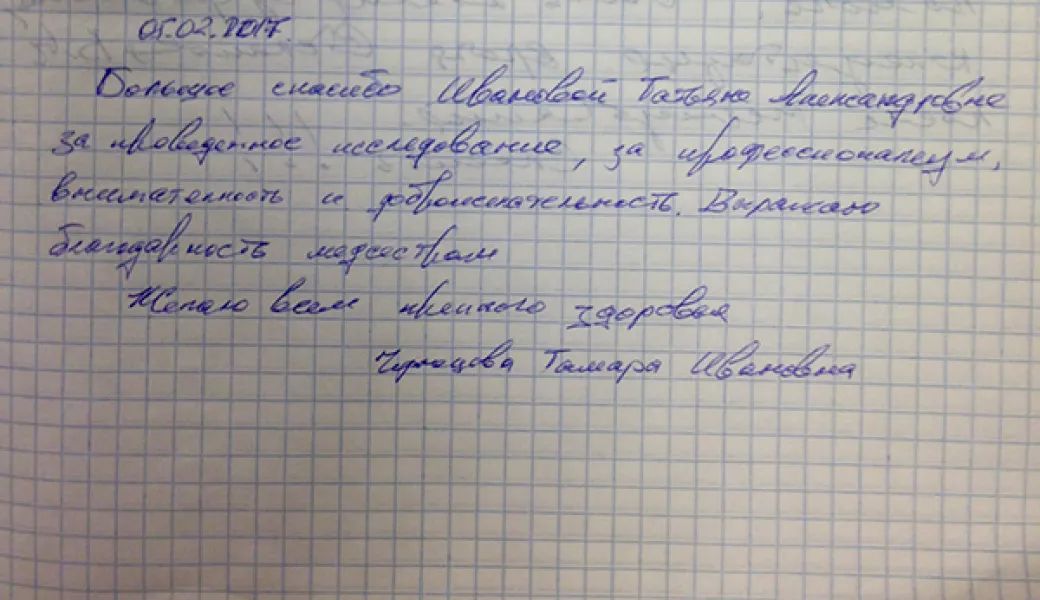 05.02.2017.
Большое спасибо Ивановой Татьяне Александровне
за проведенное исследование, за профессионализм,
внимательность и доброжелательность. Выражаю
благодарность медсестрам
Желаю всем крепкого здоровья
Тамара Ивановна